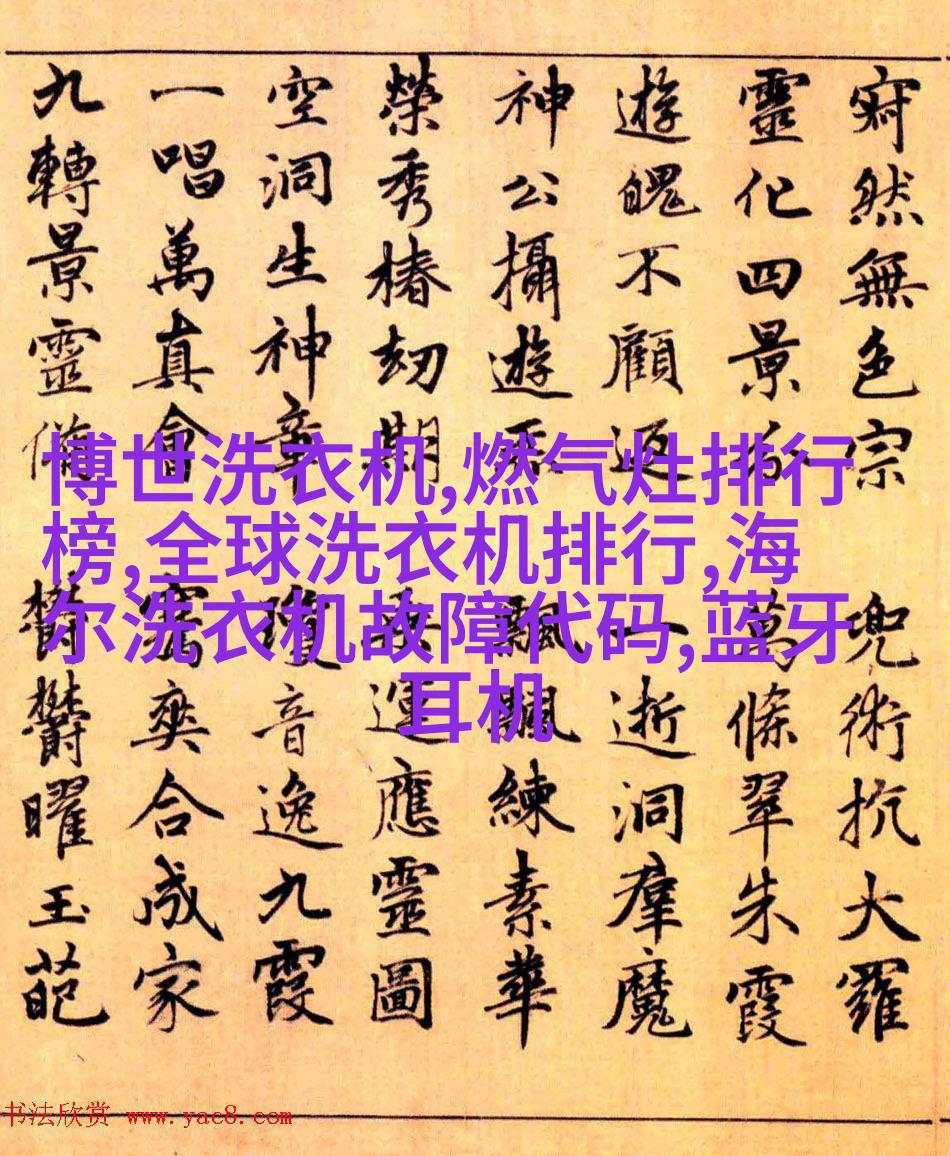 寂然無色宗 兜術抗大羅
靈化四景 萬條翠朱霞
遊魄不顧返 一逝洞羣魔
神公攝遊 飄飄練素華
榮秀椿劫期 運應靈圖
空洞生神章 瓊音逸九霞
一唱萬真會 騫爽合成家
九轉景靈備 鬱鬱曜玉葩
博世洗衣机,燃气灶排行
榜,全球洗衣机排行,海
尔洗衣机故障代码,蓝牙
耳机
书法欣赏 www.yac8.com